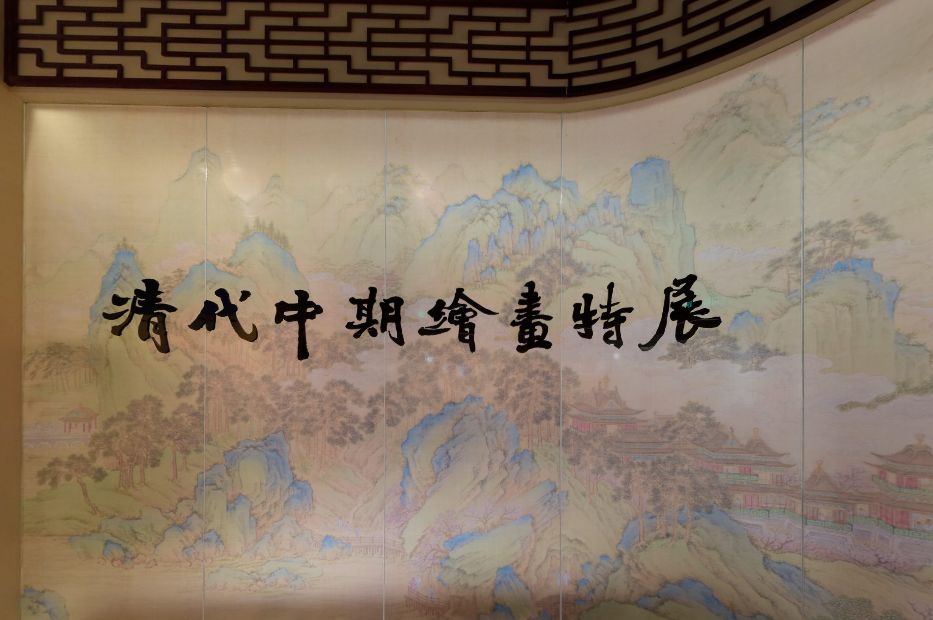 清代中期繪畫特展